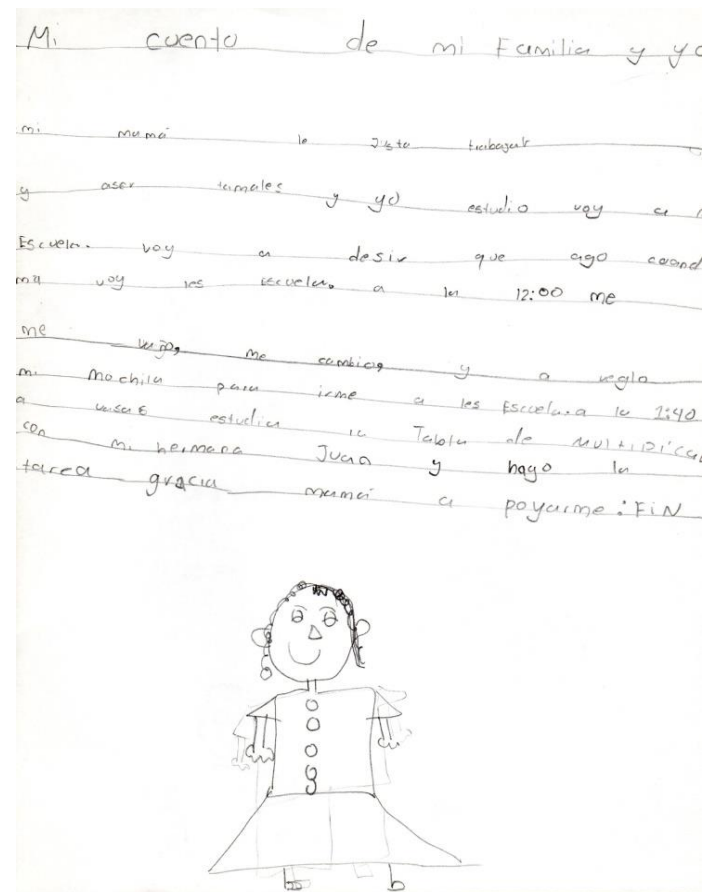 Mi cuento de mi Familia y yo
mi mamá le Justa trabajar
y aser tamales y yo estudio voy a
Escuela. voy a desir que ago cuand
voy les escuela. a la 12:00 me
me baño, me cambio, y a reglo
mi mochila para irme a les Escuela. a la 1:40
a veses estudia la Tabla de
con mi hermano Juan y hago la
tarea gracia mamá a poyarme : FiN